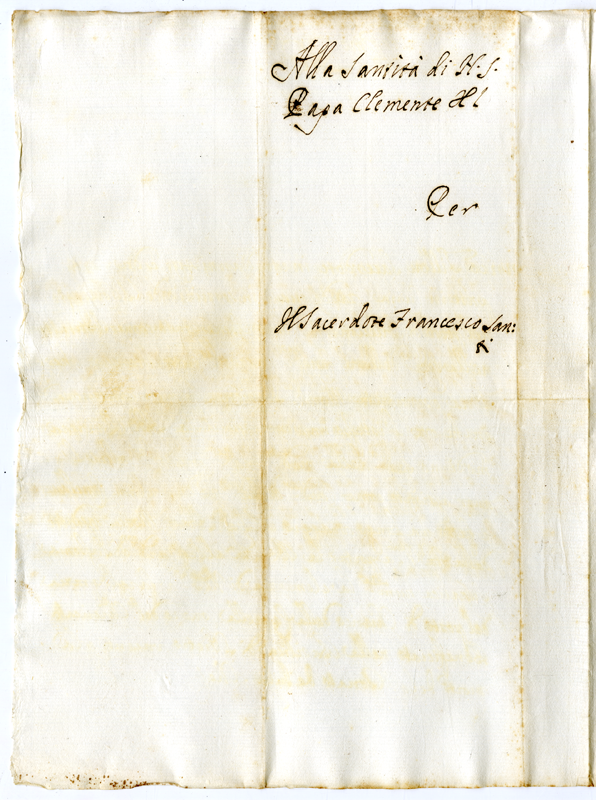 Alla Santità di N. S.
Papa Clemente XI
Per
Il Sacerdote Francesco San:
ti